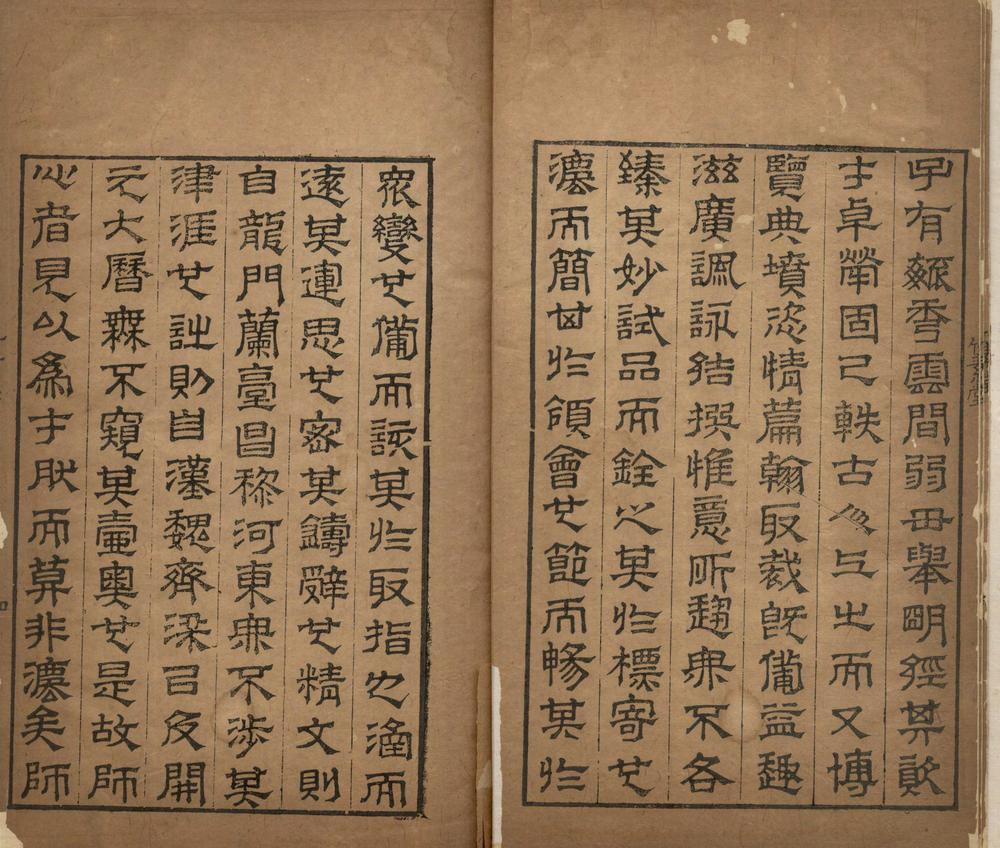 有香雲間弱毌舉明經其
才卓犖固已軼古人上之而又博
覽典墳恣情篇翰取裁既備益趣
滋廣諷詠結撰惟意所趨罔不各
臻其妙試品而銓之其於標寄也
灋而簡其於領會也節而暢其於
眾變也備而該其於取指也涵而
遠其運思也密其鑄辭也精文則
自龍門蘭臺昌黎河東罔不涉其
津涯也詩則自漢魏齊梁以及開
元大曆無不窺其壼奧也是故師
心者見以為才肰而莫非灋矣師